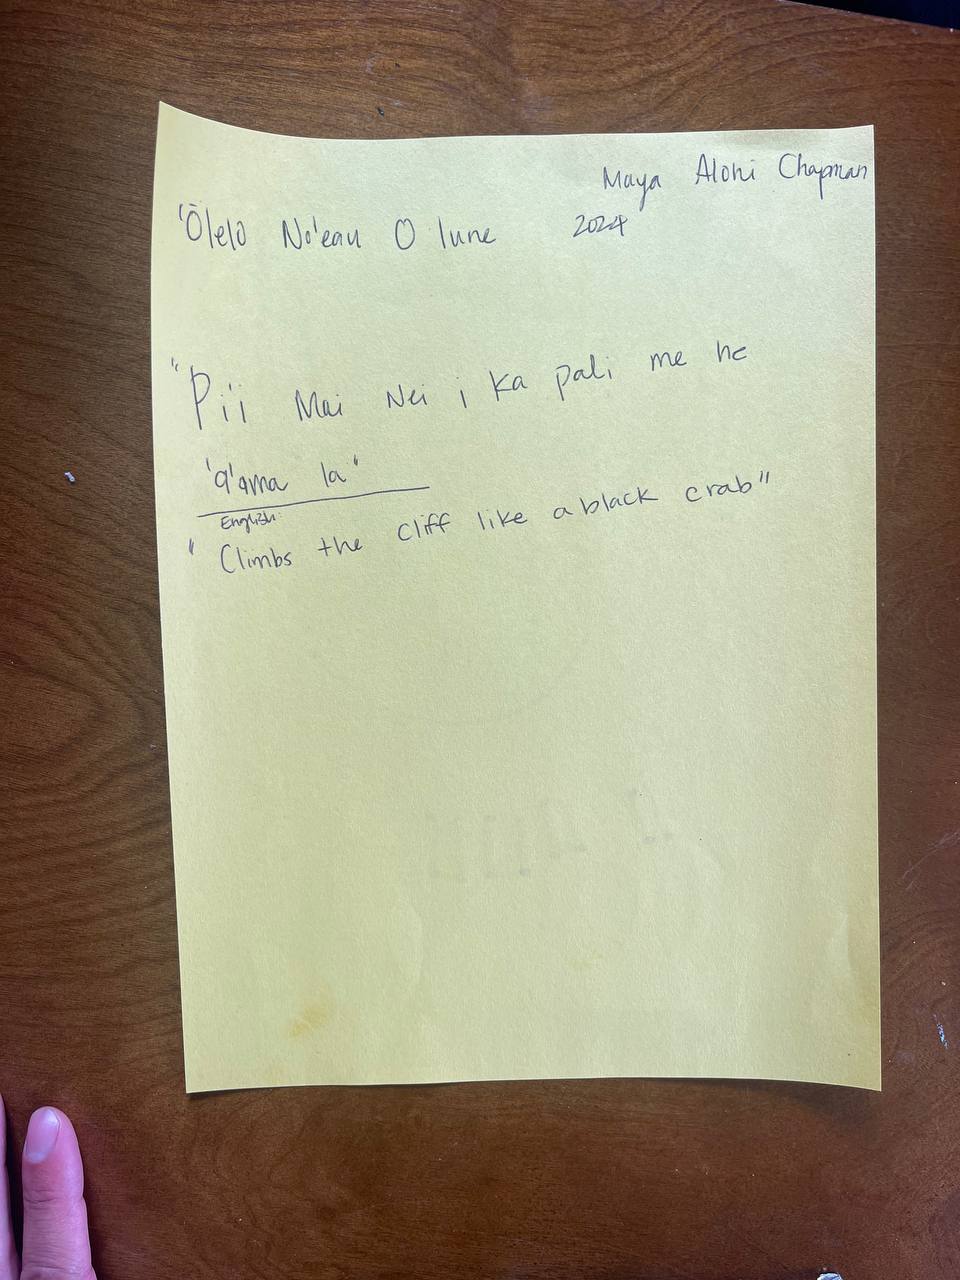 Maya Alohi Chapman
'Ōlelo No'eau O Iune 2024
"Pi'i Mai Nei i ka pali me he
'a'ama la"
English:
"Climbs the cliff like a black crab"